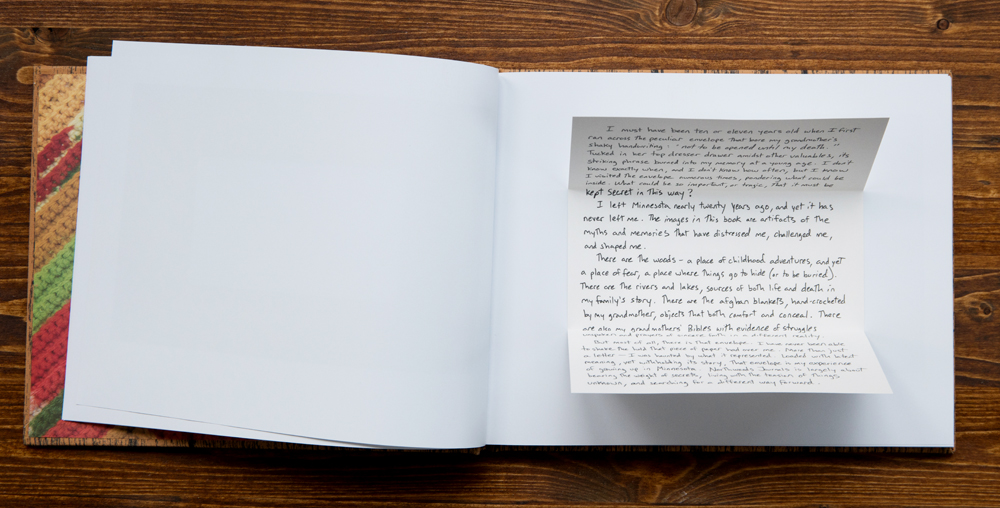 I must have been ten or eleven years old when I first
ran across the peculiar envelope that bore my grandmother's
shaky handwriting: "not to be opened until my death."
Tucked in her top dresser drawer amidst other valuables, its
striking phrase burned into my memory at a young age. I don't
know exactly when, and I don't know how often, but I know
I visited the envelope numerous times, pondering what could be
inside. What could be so important, or tragic, that it must be
kept secret in this way?
I left Minnesota nearly twenty years ago, and yet it has
never left me. The images in this book are artifacts of the
myths and memories that have distressed me, challenged me,
and shaped me.
There are the woods – a place of childhood adventures, and yet
a place of fear, a place where things go to hide (or to be buried).
There are the rivers and lakes, sources of both life and death in
my family's story. There are the afghan blankets, hand-crocheted
by my grandmother, objects that both comfort and conceal. There
are also my grandmothers' Bibles with evidence of struggles
unspoken and prayers of sincere faith in a different reality.
But most of all, there is that envelope. I have never been able
to shake the hold that piece of paper had over me. More than just
a letter – I was haunted by what it represented. Loaded with latent
meaning, yet withholding its story, that envelope is my experience
of growing up in Minnesota. Northwoods Journals is largely about
bearing the weight of secrets, living with the tension of things
unknown, and searching for a different way forward.